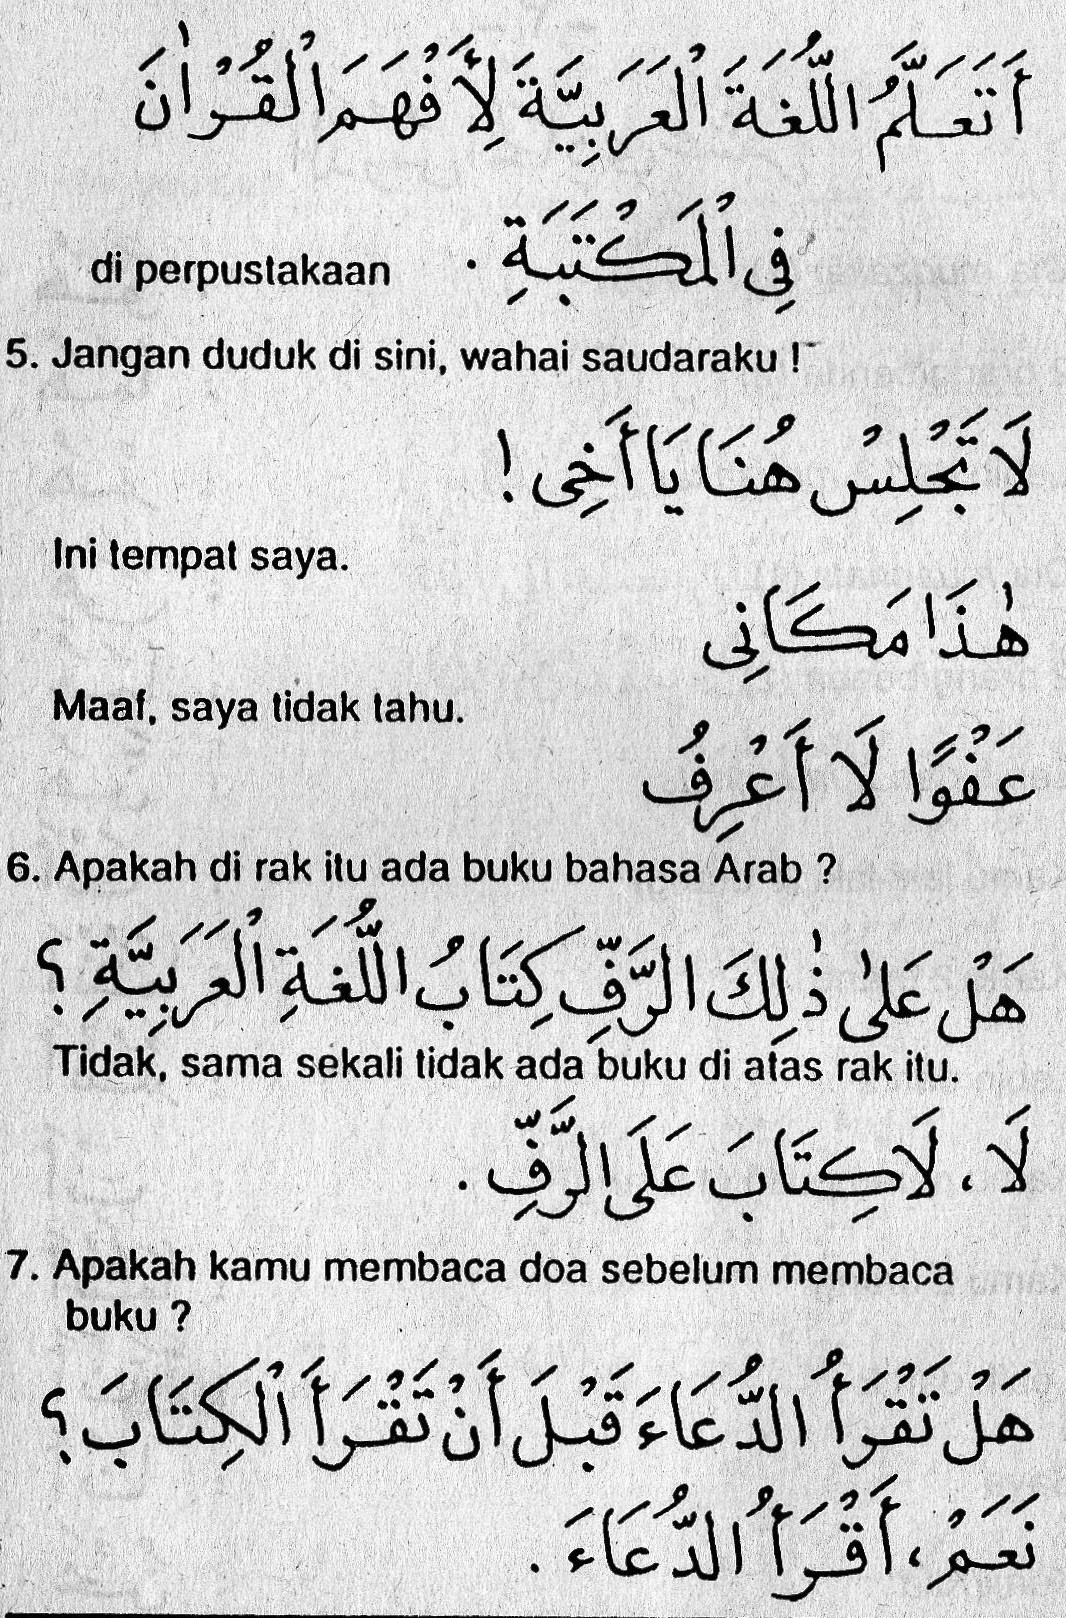 أَتَعَلَّمُ اللُّغَةَ الْعَرَبِيَّةَ لِأَفْهَمَ الْقُرْاٰنَ
di perpustakaan فِى الْمَكْتَبَةِ .
5. Jangan duduk di sini, wahai saudaraku !
لَا تَجْلِسْ هُنَا يَا أَخِى !
Ini tempat saya.
هٰذَا مَكَانِى
Maaf, saya tidak tahu.
عَفْوًا لَا أَعْرِفُ
6. Apakah di rak itu ada buku bahasa Arab ?
هَلْ عَلٰى ذٰلِكَ الرَّفِّ كِتَابُ اللُّغَةِ الْعَرَبِيَّةِ ؟
Tidak, sama sekali tidak ada buku di atas rak itu.
لَا ، لَا كِتَابَ عَلَى الرَّفِّ .
7. Apakah kamu membaca doa sebelum membaca
buku ?
هَلْ تَقْرَأُ الدُّعَاءَ قَبْلَ أَنْ تَقْرَأَ الْكِتَابَ ؟
نَعَمْ ، أَقْرَأُ الدُّعَاءَ .